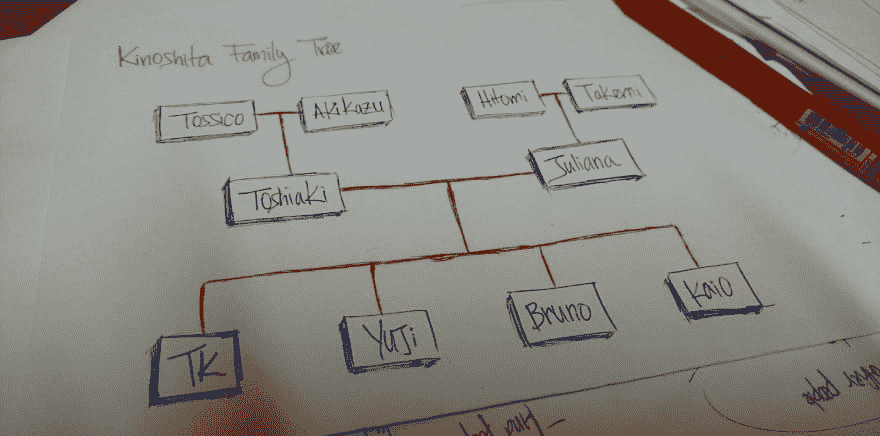 Kinoshita Family Tree
Tossico
AKiKazu
Hitomi
Takemi
Toshiaki
Juliana
TK
YuJi
Bruno
Kaio